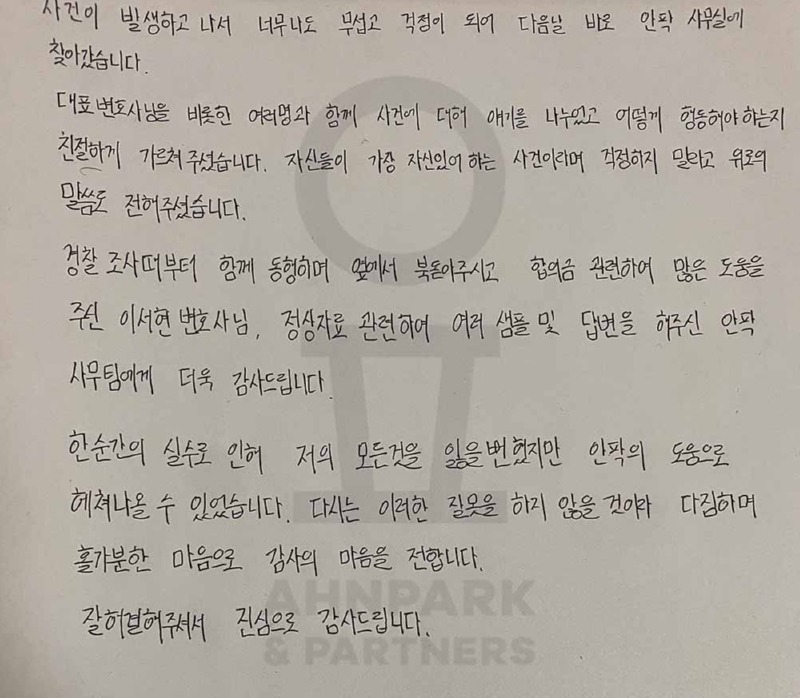 사건이 발생하고 나서 너무나도 무섭고 걱정이 되어 다음날 바로 안팍 사무실에
찾아갔습니다.
대표변호사님을 비롯한 여러명과 함께 사건에 대해 얘기를 나누었고 어떻게 행동해야 하는지
친절하게 가르쳐 주셨습니다. 자신들이 가장 자신있어 하는 사건이라며 걱정하지 말라고 위로의
말씀도 전해주셨습니다.
경찰 조사때부터 함께 동행하며 옆에서 북돋아주시고 합의금 관련하여 많은 도움을
주신 이서현 변호사님, 정상자료 관련하여 여러 샘플 및 답변을 해주신 안팍
사무팀에게 더욱 감사드립니다.
한순간의 실수로 인해 저의 모든것을 잃을뻔 했지만 안팍의 도움으로
헤쳐나올 수 있었습니다. 다시는 이러한 잘못을 하지 않을 것이라 다짐하며
홀가분한 마음으로 감사의 마음을 전합니다.
잘해결해주셔서 진심으로 감사드립니다.
AHNPARK
& PARTNERS